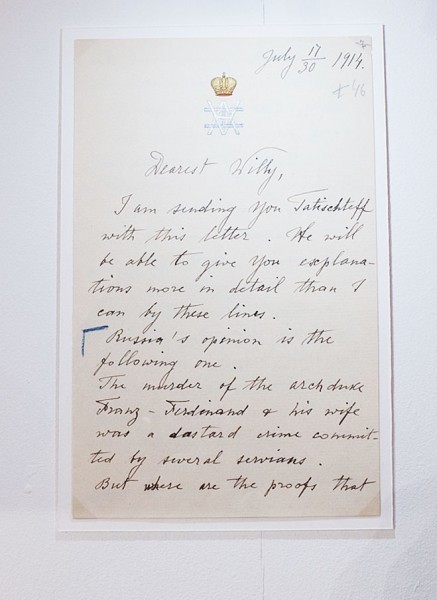 July 17/30 1914.
# 46
Dearest Willy,
I am sending you Tatischteff
with this letter. He will
be able to give you explana-
tions more in detail than I
can by these lines.
Russia's opinion is the
following one.
The murder of the archduke
Franz-Ferdinand & his wife
was a dastard crime commit-
ted by several servians.
But where are the proofs that